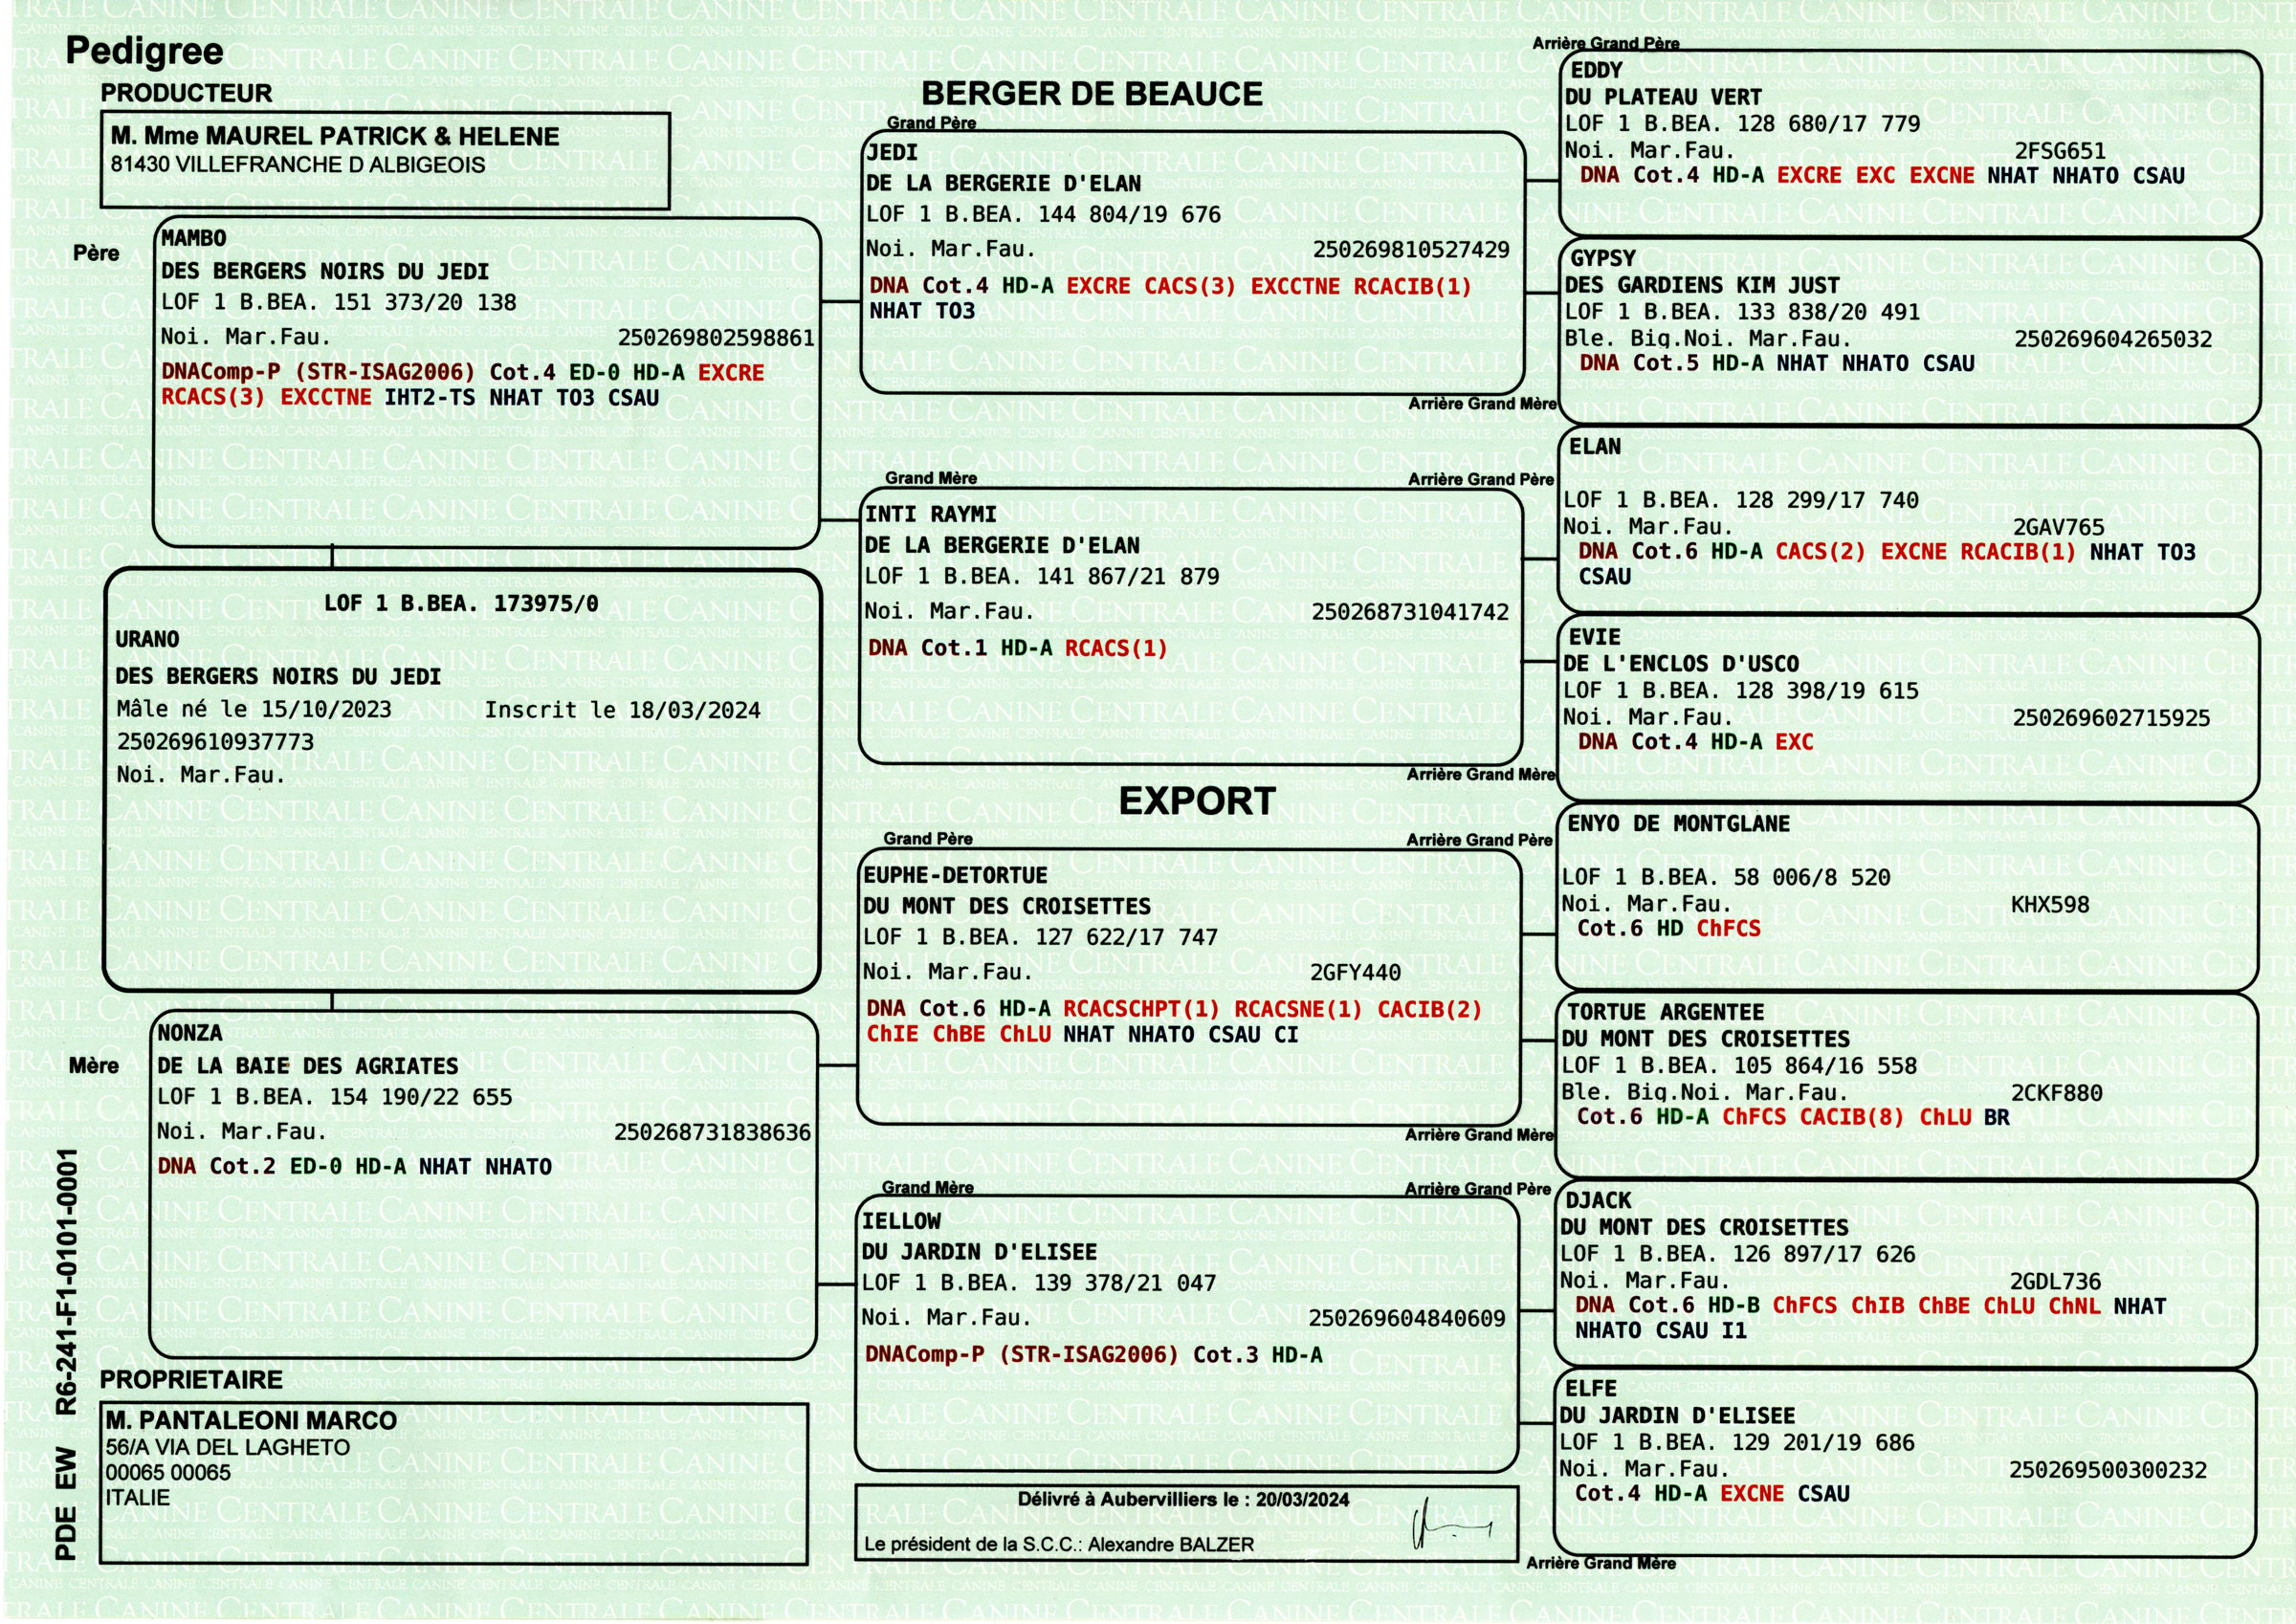 Pedigree
PRODUCTEUR
M. Mme MAUREL PATRICK & HELENE
81430 VILLEFRANCHE D ALBIGEOIS
BERGER DE BEAUCE
Père
MAMBO
DES BERGERS NOIRS DU JEDI
LOF 1 B.BEA. 151 373/20 138
Noi. Mar.Fau. 250269802598861
DNAComp-P (STR-ISAG2006) Cot.4 ED-0 HD-A EXCRE
RCACS(3) EXCCTNE IHT2-TS NHAT TO3 CSAU
LOF 1 B.BEA. 173975/0
URANO
DES BERGERS NOIRS DU JEDI
Mâle né le 15/10/2023 Inscrit le 18/03/2024
250269610937773
Noi. Mar.Fau.
Mère
NONZA
DE LA BAIE DES AGRIATES
LOF 1 B.BEA. 154 190/22 655
Noi. Mar.Fau. 250268731838636
DNA Cot.2 ED-0 HD-A NHAT NHATO
PROPRIETAIRE
M. PANTALEONI MARCO
56/A VIA DEL LAGHETO
00065 00065
ITALIE
PDE EW R6-241-F1-0101-0001
Grand Père
JEDI
DE LA BERGERIE D'ELAN
LOF 1 B.BEA. 144 804/19 676
Noi. Mar.Fau. 250269810527429
DNA Cot.4 HD-A EXCRE CACS(3) EXCCTNE RCACIB(1)
NHAT TO3
Grand Mère
INTI RAYMI
DE LA BERGERIE D'ELAN
LOF 1 B.BEA. 141 867/21 879
Noi. Mar.Fau. 250268731041742
DNA Cot.1 HD-A RCACS(1)
EXPORT
Grand Père
EUPHE-DETORTUE
DU MONT DES CROISETTES
LOF 1 B.BEA. 127 622/17 747
Noi. Mar.Fau. 2GFY440
DNA Cot.6 HD-A RCACSCHPT(1) RCACSNE(1) CACIB(2)
ChIE ChBE ChLU NHAT NHATO CSAU CI
Grand Mère
IELLOW
DU JARDIN D'ELISEE
LOF 1 B.BEA. 139 378/21 047
Noi. Mar.Fau. 250269604840609
DNAComp-P (STR-ISAG2006) Cot.3 HD-A
Délivré à Aubervilliers le : 20/03/2024
Le président de la S.C.C.: Alexandre BALZER
Arrière Grand Père
EDDY
DU PLATEAU VERT
LOF 1 B.BEA. 128 680/17 779
Noi. Mar.Fau. 2FSG651
DNA Cot.4 HD-A EXCRE EXC EXCNE NHAT NHATO CSAU
GYPSY
DES GARDIENS KIM JUST
LOF 1 B.BEA. 133 838/20 491
Ble. Big.Noi. Mar.Fau. 250269604265032
DNA Cot.5 HD-A NHAT NHATO CSAU
Arrière Grand Mère
Arrière Grand Père
ELAN
LOF 1 B.BEA. 128 299/17 740
Noi. Mar.Fau. 2GAV765
DNA Cot.6 HD-A CACS(2) EXCNE RCACIB(1) NHAT TO3
CSAU
EVIE
DE L'ENCLOS D'USCO
LOF 1 B.BEA. 128 398/19 615
Noi. Mar.Fau. 250269602715925
DNA Cot.4 HD-A EXC
Arrière Grand Mère
Arrière Grand Père
ENYO DE MONTGLANE
LOF 1 B.BEA. 58 006/8 520
Noi. Mar.Fau. KHX598
Cot.6 HD ChFCS
TORTUE ARGENTEE
DU MONT DES CROISETTES
LOF 1 B.BEA. 105 864/16 558
Ble. Big.Noi. Mar.Fau. 2CKF880
Cot.6 HD-A ChFCS CACIB(8) ChLU BR
Arrière Grand Mère
Arrière Grand Père
DJACK
DU MONT DES CROISETTES
LOF 1 B.BEA. 126 897/17 626
Noi. Mar.Fau. 2GDL736
DNA Cot.6 HD-B ChFCS ChIB ChBE ChLU ChNL NHAT
NHATO CSAU I1
ELFE
DU JARDIN D'ELISEE
LOF 1 B.BEA. 129 201/19 686
Noi. Mar.Fau. 250269500300232
Cot.4 HD-A EXCNE CSAU
Arrière Grand Mère